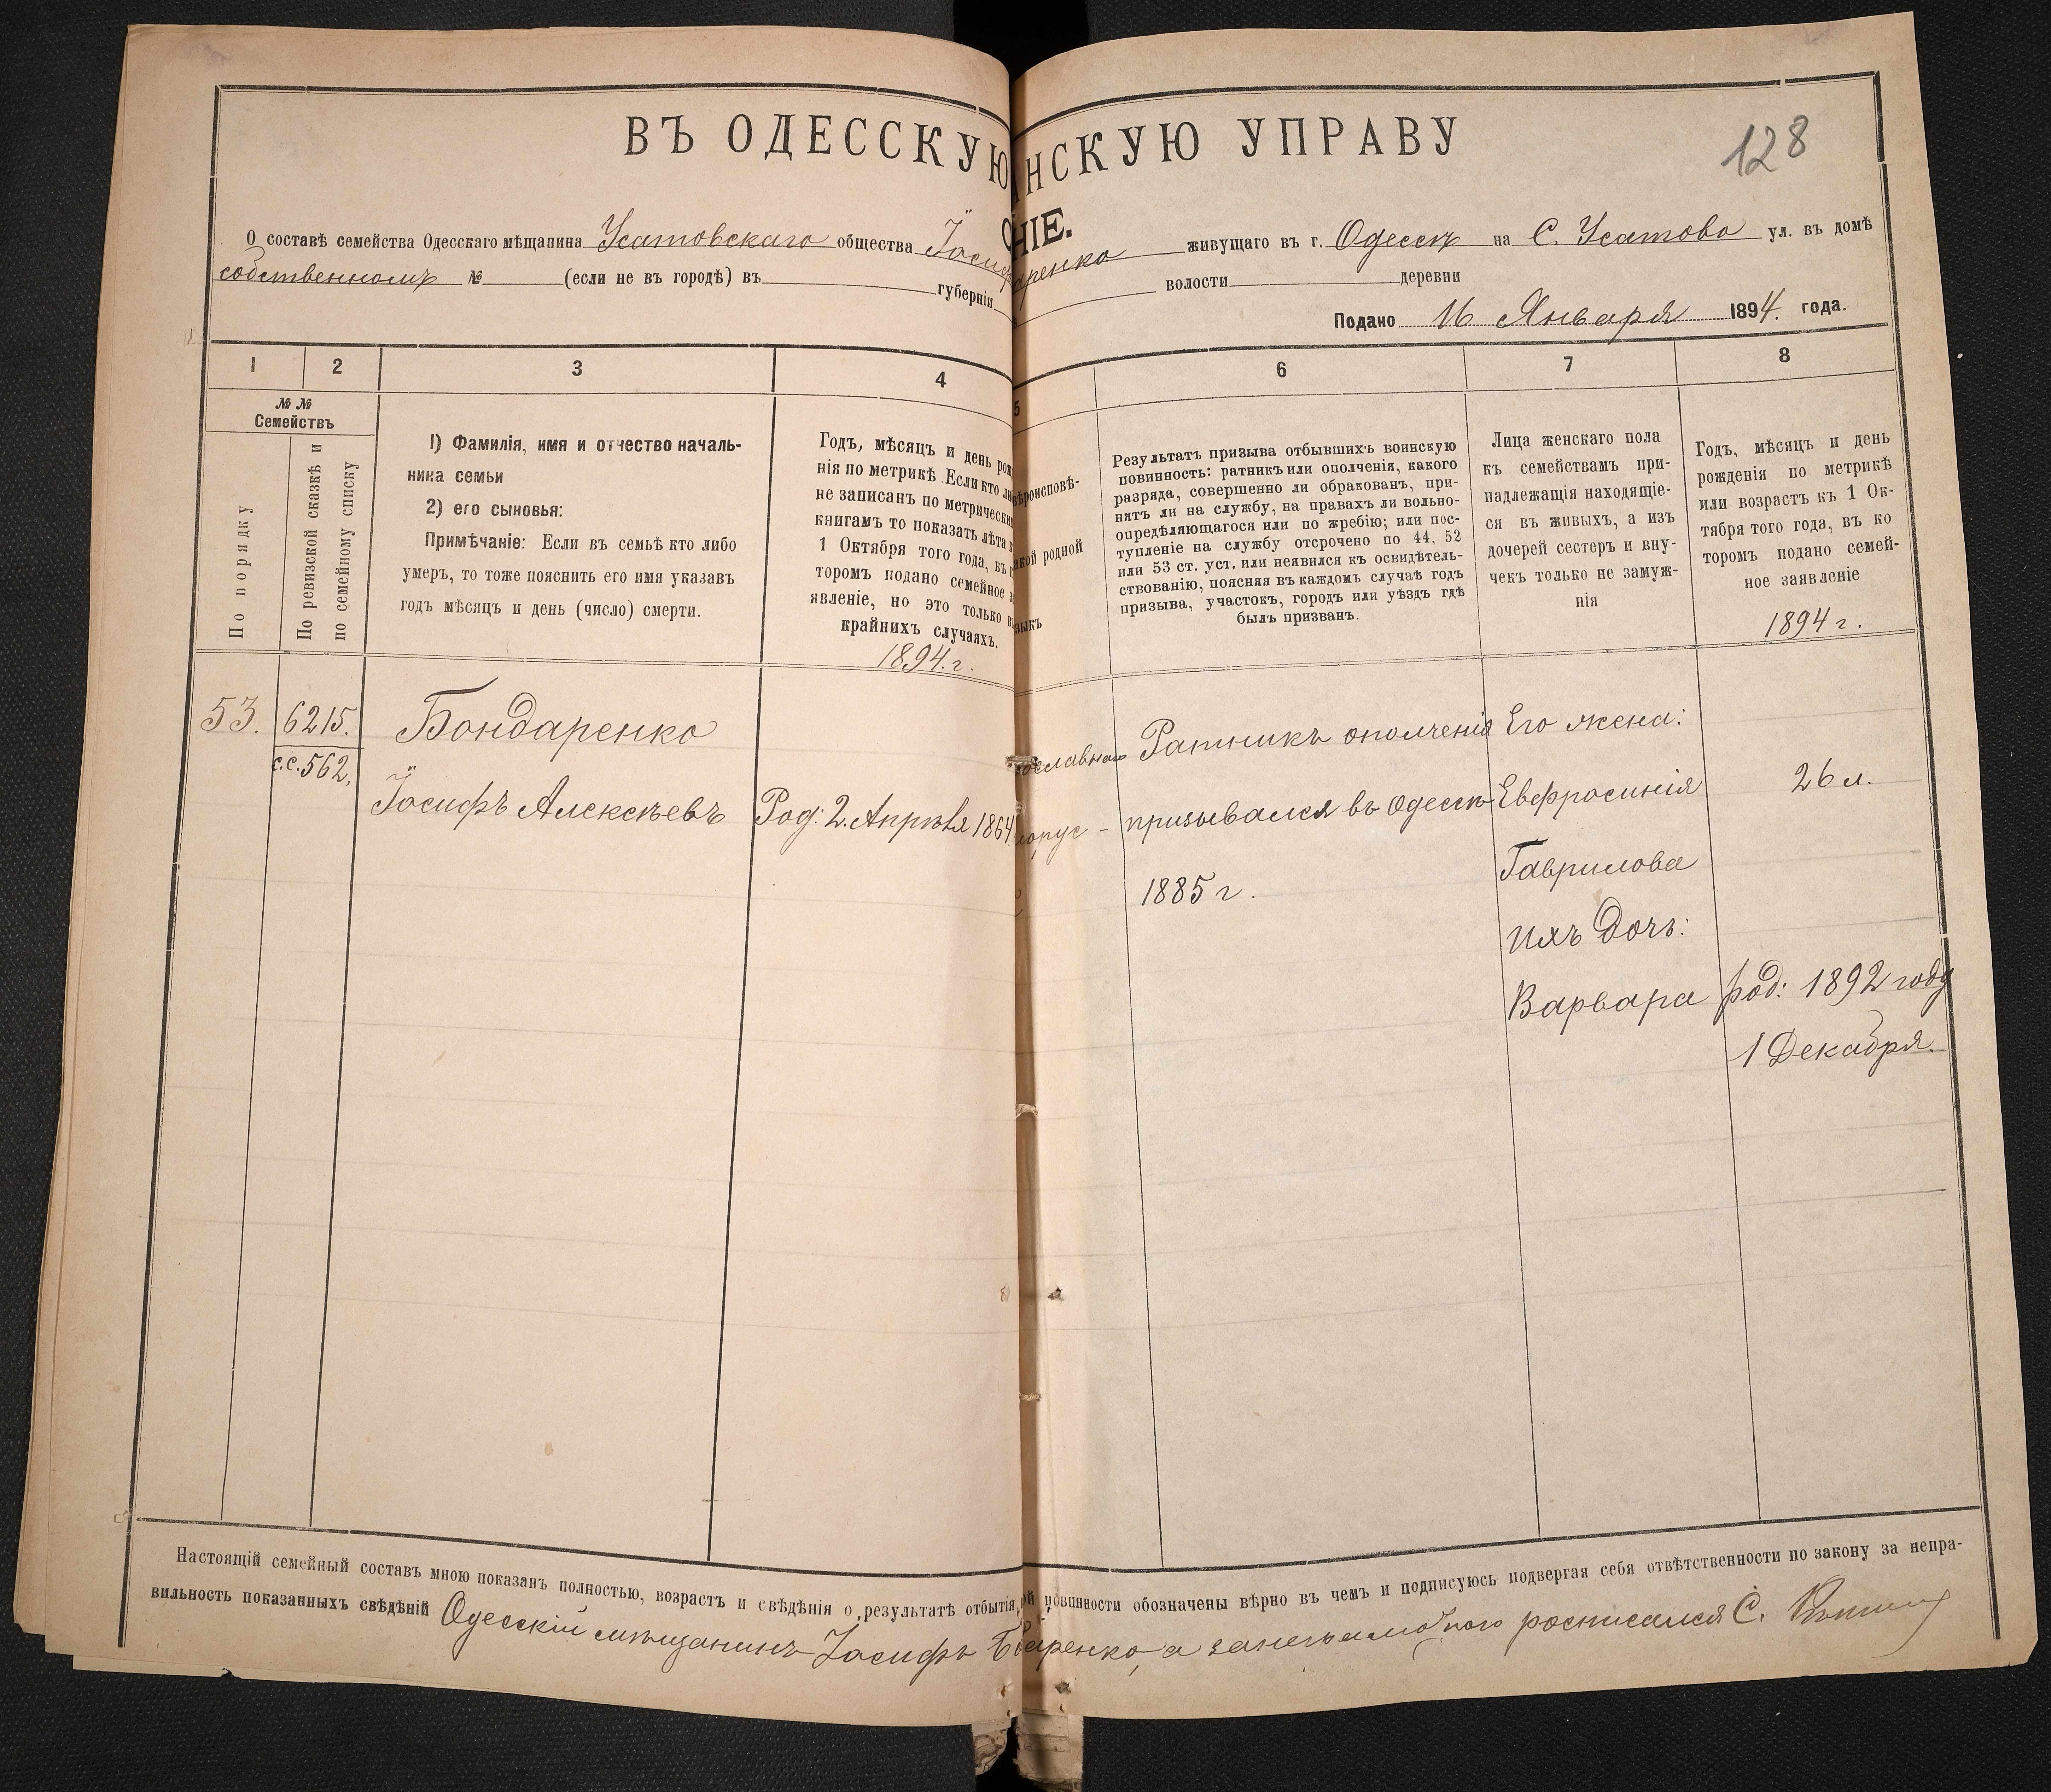 ВЪ ОДЕССКУЮ НСКУЮ УПРАВУ
128
НІЕ.
О составѣ семейства Одесскаго мѣщанина Усатовскаго общества Іосиф аренко живущаго въ г. Одессѣ на С. Усатово ул. въ домѣ
собственномъ № (если не въ городѣ) въ губерніи волости деревни
Подано 16 Января 1894. года.
1 2 3 4 5 6 7 8
№ № Семействъ
По порядку
По ревизской сказкѣ и
по семейному списку
1) Фамилія, имя и отчество началь-
ника семьи
2) его сыновья:
Примѣчаніе: Если въ семьѣ кто либо
умеръ, то тоже пояснить его имя указавъ
годъ мѣсяцъ и день (число) смерти.
Годъ, мѣсяцъ и день рож
нія по метрикѣ. Если кто ли
не записанъ по метрически
книгамъ то показать лѣта к
1 Октября того года, въ к
торомъ подано семейное з
явленіе, но это только в
крайнихъ случаяхъ.
1894. г.
ѣроисповѣ-
акой родной
зыкъ
Результатъ призыва отбывшихъ воинскую
повинность: ратникъ или ополченія, какого
разряда, совершенно ли обракованъ, при-
нятъ ли на службу, на правахъ ли вольно-
опредѣляющагося или по жребію; или пос-
тупленіе на службу отсрочено по 44, 52
или 53 ст. уст. или неявился къ освидѣтель-
ствованію, поясняя въ каждомъ случаѣ годъ
призыва, участокъ, городъ или уѣздъ гдѣ
былъ призванъ.
Лица женскаго пола
къ семействамъ при-
надлежащія находящіе-
ся въ живыхъ, а изъ
дочерей сестеръ и вну-
чекъ только не замуж-
нія
Годъ, мѣсяцъ и день
рожденія по метрикѣ
или возрастъ къ 1 Ок-
тября того года, въ ко
торомъ подано семей-
ное заявленіе
1894 г.
53. 6215. Бондаренко ославнаго Ратникъ ополченія Его жена:
с.с. 562, Іосифъ Алексѣевъ Род: 2. Апрѣля 1864 лорус - призывался въ Одессѣ Евфросинія 26 л.
1885 г. Гаврилова
ихъ Дочь:
Варвара род: 1892 году
1 Декабря.
Настоящій семейный составъ мною показанъ полностью, возрастъ и свѣдѣнія о результатѣ отбытія ой повинности обозначены вѣрно въ чемъ и подписуюсь подвергая себя отвѣтственности по закону за непра-
вильность показанныхъ свѣдѣній Одесскій мѣщанинъ Іосифъ Б аренко, а за неграмотного росписался С.